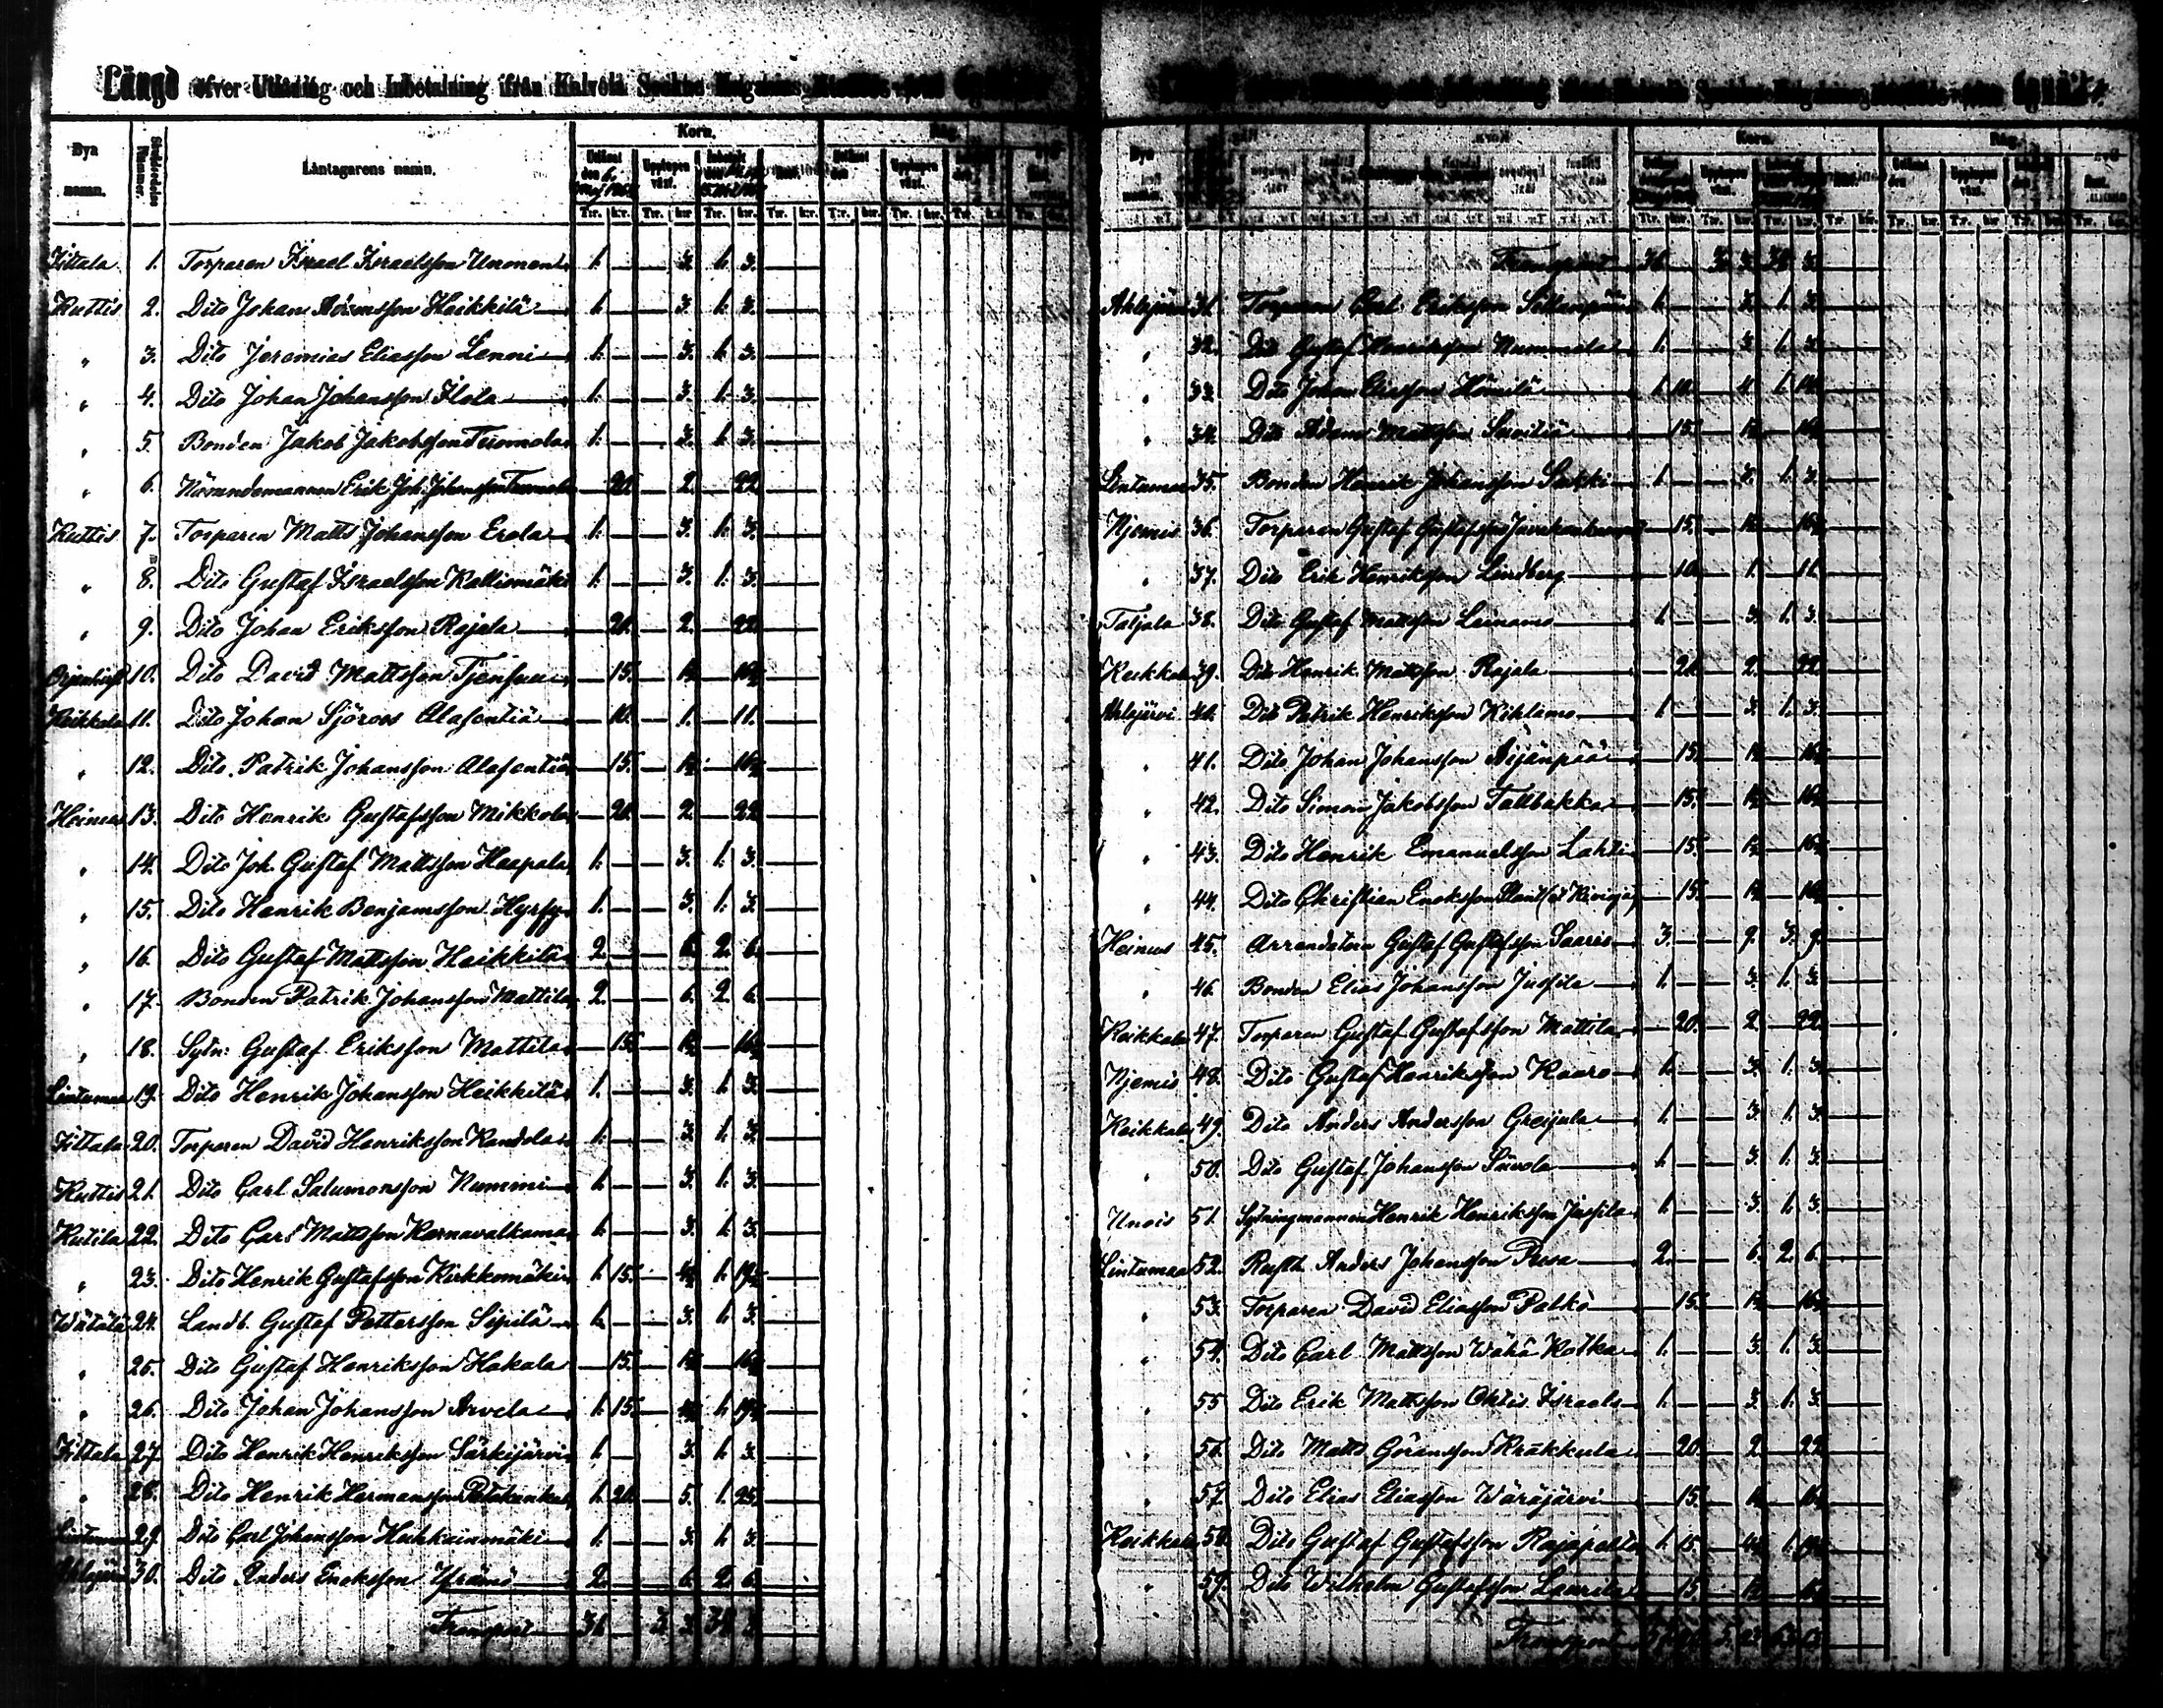 Längd öfver Utlåning och Inbetalning ifrån Kalvola Sockne Magasins
Bya namn. Låntagarens namn. Korn.
Utlånt den Upplupen växt.
T:r. k:r. T:r. k:r. T:r. k:r. T:r. k:r. T:r. k:r. T:r. k:r.
Ittala 1. Torparen Israel Israelsson Uronen 1. — — 3. 1. 3.
Kuttis 2. Dito Johan Adamsson Heikkilä 1. — — 3. 1. 3.
" 3. Dito Jeremias Eliasson Lenni 1. — — 3. 1. 3.
" 4. Dito Johan Johansson Ilola 1. — — 3. 1. 3.
" 5. Bonden Jakob Jakobsson Tuomola 1. — — 3. 1. 3.
" 6. Nämndemannen Erik Joh. Johansson Tuomola — 20. — 2. — 22.
Kuttis 7. Torparen Matts Johansson Erola 1. — — 3. 1. 3.
" 8. Dito Gustaf Israelsson Kalliomäki 1. — — 3. 1. 3.
" 9. Dito Johan Eriksson Rajala — 20. — 2. — 22.
10. Dito David Mattsson Tjensuu — 15. — 1½ — 16½
Keikkala 11. Dito Johan Sjöroos Alasentiä — 10. — 1. — 11.
" 12. Dito Patrik Johansson Alasentiä — 15. — 1½ — 16½
Heinus 13. Dito Henrik Gustafsson Mikkola — 20. — 2. — 22.
" 14. Dito Joh. Gustaf Mattsson Haapala 1. — — 3. 1. 3.
" 15. Dito Henrik Benjamsson Hyrsy 1. — — 3. 1. 3.
" 16. Dito Gustaf Mattsson Heikkilä 2. — — 6. 2. 6.
" 17. Bonden Patrik Johansson Mattila 2. — — 6. 2. 6.
" 18. Sytn: Gustaf Eriksson Mattila — 15. — 1½ — 16½
Lintumaa 19. Dito Henrik Johansson Heikkilä 1. — — 3. 1. 3.
Ittala 20. Torparen David Henriksson Kandola 1. — — 3. 1. 3.
Kuttis 21. Dito Carl Salumonsson Nummi 1. — — 3. 1. 3.
Kutila 22. Dito Carl Mattsson Karnavalkama 1. — — 3. 1. 3.
" 23. Dito Henrik Gustafsson Kirkkomäki 1. 15. — 4½ 1. 19½
Wätälä 24. Landb. Gustaf Pettersson Sipilä 1. — — 3. 1. 3.
" 25. Dito Gustaf Henriksson Hakala — 15. — 1½ — 16½
" 26. Dito Johan Johansson Arvela 1. 15. — 4½ 1. 19½
Ittala 27. Dito Henrik Henriksson Särkijärvi 1. — — 3. 1. 3.
" 28. Dito Henrik Hermansson 1. 20. — 5. 1. 25.
Lintumaa 29. Dito Carl Johansson Huhkainmäki 1. — — 3. 1. 3.
Ahlajärvi 30. Dito Anders Enoksson 2. — — 6. 2. 6.
Transport 31. — 3. 3. 34. 3.
Transport 31. — 3. 3. 34. 3.
Ahlajärvi 31. Torparen Carl Eriksson Sillanpää 1. — — 3. 1. 3.
" 32. Dito Gustaf Henriksson Nummela 1. — — 3. 1. 3.
" 33. Dito Johan Eliasson 1. 10. — 4. 1. 14.
" 34. Dito Adam Mattsson — 15. — 1½ — 16½
Lintumaa 35. Bonden Henrik Johansson Sakki 1. — — 3. 1. 3.
Njemis 36. Torparen Gustaf Gustafsson — 15. — 1½ — 16½
" 37. Dito Erik Henriksson Lindberg — 10. — 1. — 11.
Taljala 38. Dito Gustaf Mattsson Leinamo 1. — — 3. 1. 3.
Keikkala 39. Dito Henrik Mattsson Rajala — 20. — 2. — 22.
Ahlajärvi 40. Dito Patrik Henriksson Kihlamo 1. — — 3. 1. 3.
" 41. Dito Johan Johansson Äijänpää — 15. — 1½ — 16½
" 42. Dito Simon Jakobsson Tallbakka — 15. — 1½ — 16½
" 43. Dito Henrik Emanuelsson Lahti — 15. — 1½ — 16½
" 44. Dito Christian Enoksson — 15. — 1½ — 16½
Heinus 45. Arrendatorn Gustaf Gustafsson Saario 3. — — 9. 3. 9.
" 46. Bonden Elias Johansson Jussila 1. — — 3. 1. 3.
Keikkala 47. Torparen Gustaf Gustafsson Mattila — 20. — 2. — 22.
Njemis 48. Dito Gustaf Henriksson Kaaro 1. — — 3. 1. 3.
Keikkala 49. Dito Anders Andersson Greijula 1. — — 3. 1. 3.
" 50. Dito Gustaf Johansson Suvola 1. — — 3. 1. 3.
Unois 51. Sytningmannen Henrik Henriksson Jussila 1. — — 3. 1. 3.
Lintumaa 52. Rusth. Anders Johansson Pusa 2. — — 6. 2. 6.
" 53. Torparen David Eliasson Palko — 15. — 1½ — 16½
" 54. Dito Carl Mattsson Wähä Kotka 1. — — 3. 1. 3.
" 55 Dito Erik Mattsson Israels 1. — — 3. 1. 3.
" 56. Dito Matts Göransson Kräkkula — 20. — 2. — 22.
" 57. Dito Elias Eliasson Wäräjärvi — 15. — 1½ — 16½
Keikkala 58. Dito Gustaf Gustafsson Rajapelto 1. 15. — 4½ 1. 19½
" 59. Dito Wilhelm Gustafsson Laurila — 15. — 1½ — 16½
Transport